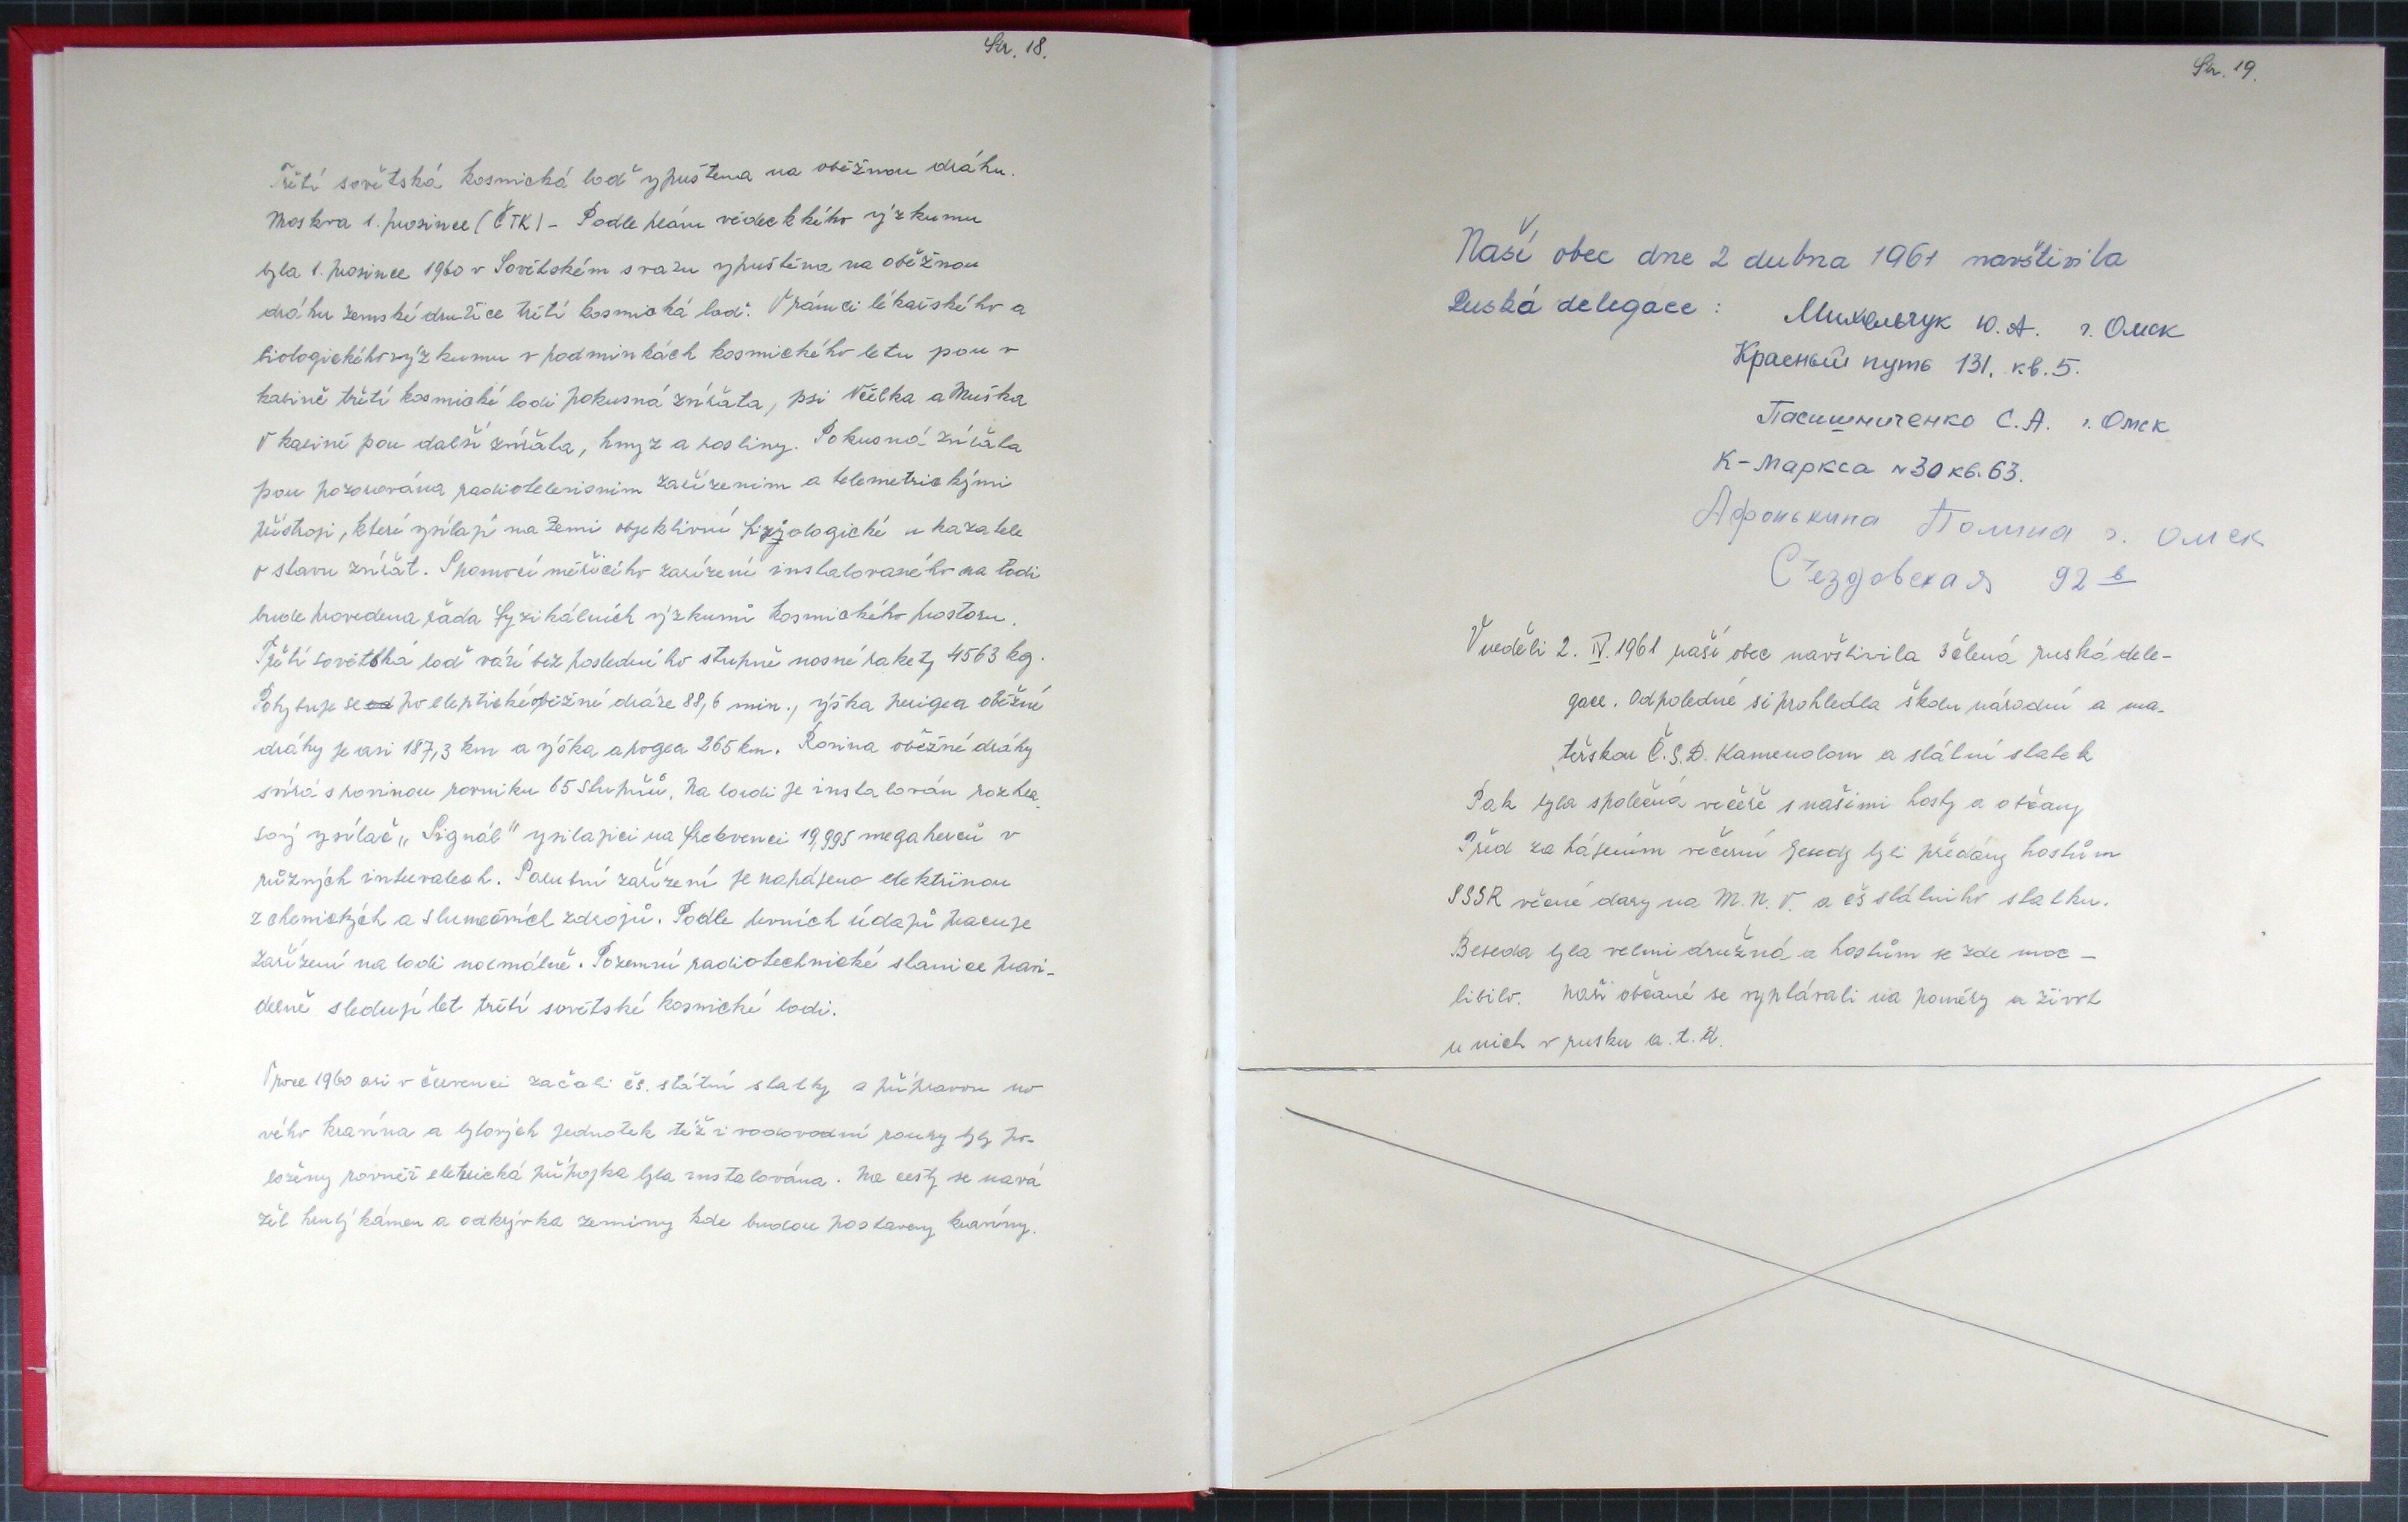 Str. 18.
Třetí sovětská kosmická loď vypuštena na oběžnou dráhu.
Moskva 1. prosince (ČTK) - Podle plánu vědeckkého výzkumu
byla 1. prosince 1960 v Sovětském svazu vypuštěna na oběžnou
dráhu zemské družice třetí kosmická loď. V rámci lékařského a
biologického výzkumu v podmínkách kosmického letu jsou v
kabině třetí kosmické lodi pokusná zvířata, psi Včelka a Muška
V kabině jsou další zvířata, hmyz a rostliny. Pokusná zvířata
jsou pozorována radiotelevisním zařízením a telemetrickými
přístroji, které vysílají na Zemi objektivní fizjologické ukazatele
o stavu zvířat. S pomocí měřícího zařízení instalovaného na lodi
bude provedena řada fyzikálních výzkumů kosmického prostoru.
Třetí sovětská loď váží bez posledního stupně nosné rakety 4563 kg.
Pohybuje se po eleptické oběžné dráze 88,6 min., výška perigea oběžné
dráhy je asi 187,3 km a výška apogea 265 km. Rovina oběžné dráhy
svírá s rovinou rovníku 65 stupňů. Na lodi je instalován rozhla-
sový vysílač „Signál" vysílající na frekvenci 19,995 megaherců v
různých intervalech. Palubní zařízení je napájeno elektřinou
z chemických a slunečních zdrojů. Podle prvních údajů pracuje
zařízení na lodi normálně. Pozemní radiotechnické stanice pravi-
delně sledují let třetí sovětské kosmické lodi.
V roce 1960 asi v červenci začali čs. státní statky s přípravou no
vého kravína a bytových jednotek též i vodovodní roury byly po-
ložěny rovněž eletrická přípojka byla instalována. Na cesty se navá
žel hrubý kámen a odkrývka zeminy kde budou postaveny kravíny.
Str. 19.
Naší obec dne 2 dubna 1961 navštivila
Ruská delegace : Михальчук Ю.А. г. Омск
Красный путь 131. кв. 5.
Пасишниченко С.А. г. Омск
К-Маркса № 30 кв. 63.
Афонькина Полина г. Омск
С'ездовская 92 в
V neděli 2. IV. 1961 naší obec navštivila 3 člená ruská dele-
gace. Odpoledné si prohledla školu národní a ma-
teřskou Č.S.D. Kamenolom a státní statek
Pak byla společná večeře s našimi hosty a občany
Před zahájením večerní besedy byli předány hostům
SSSR věcné dary na M. N. V. a čs státního statku.
Beseda byla velmi družná a hostům se zde moc -
líbilo. Naši občané se vyptávali na poměry a život
u nich v rusku a. t. d.